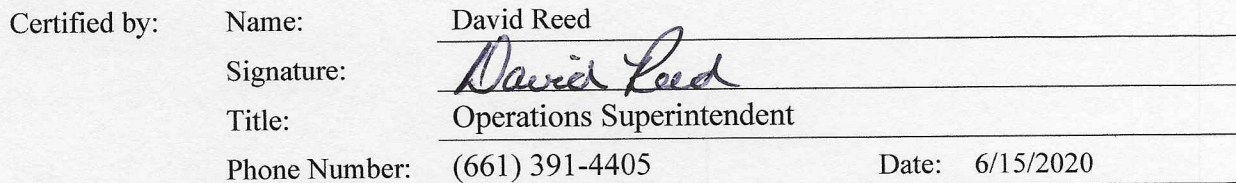 Certified by: Name: David Reed
Signature: David Reed
Title: Operations Superintendent
Phone Number: (661) 391-4405 Date: 6/15/2020